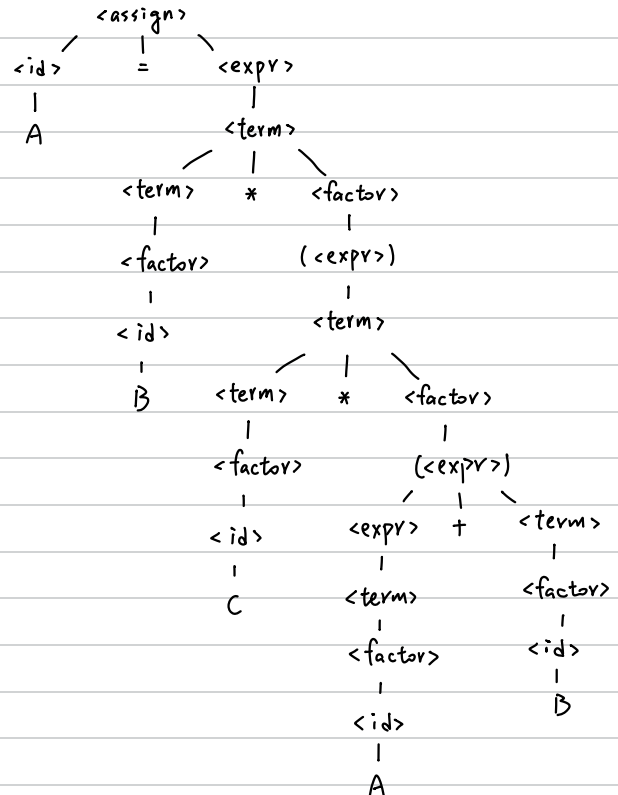 <assign>
<id> = <expr>
A
<term>
<term> * <factor>
<factor> (<expr>)
<id> <term>
B <term> * <factor>
<factor> (<expr>)
<id> <expr> + <term>
C <term> <factor>
<factor> <id>
B
<id>
A